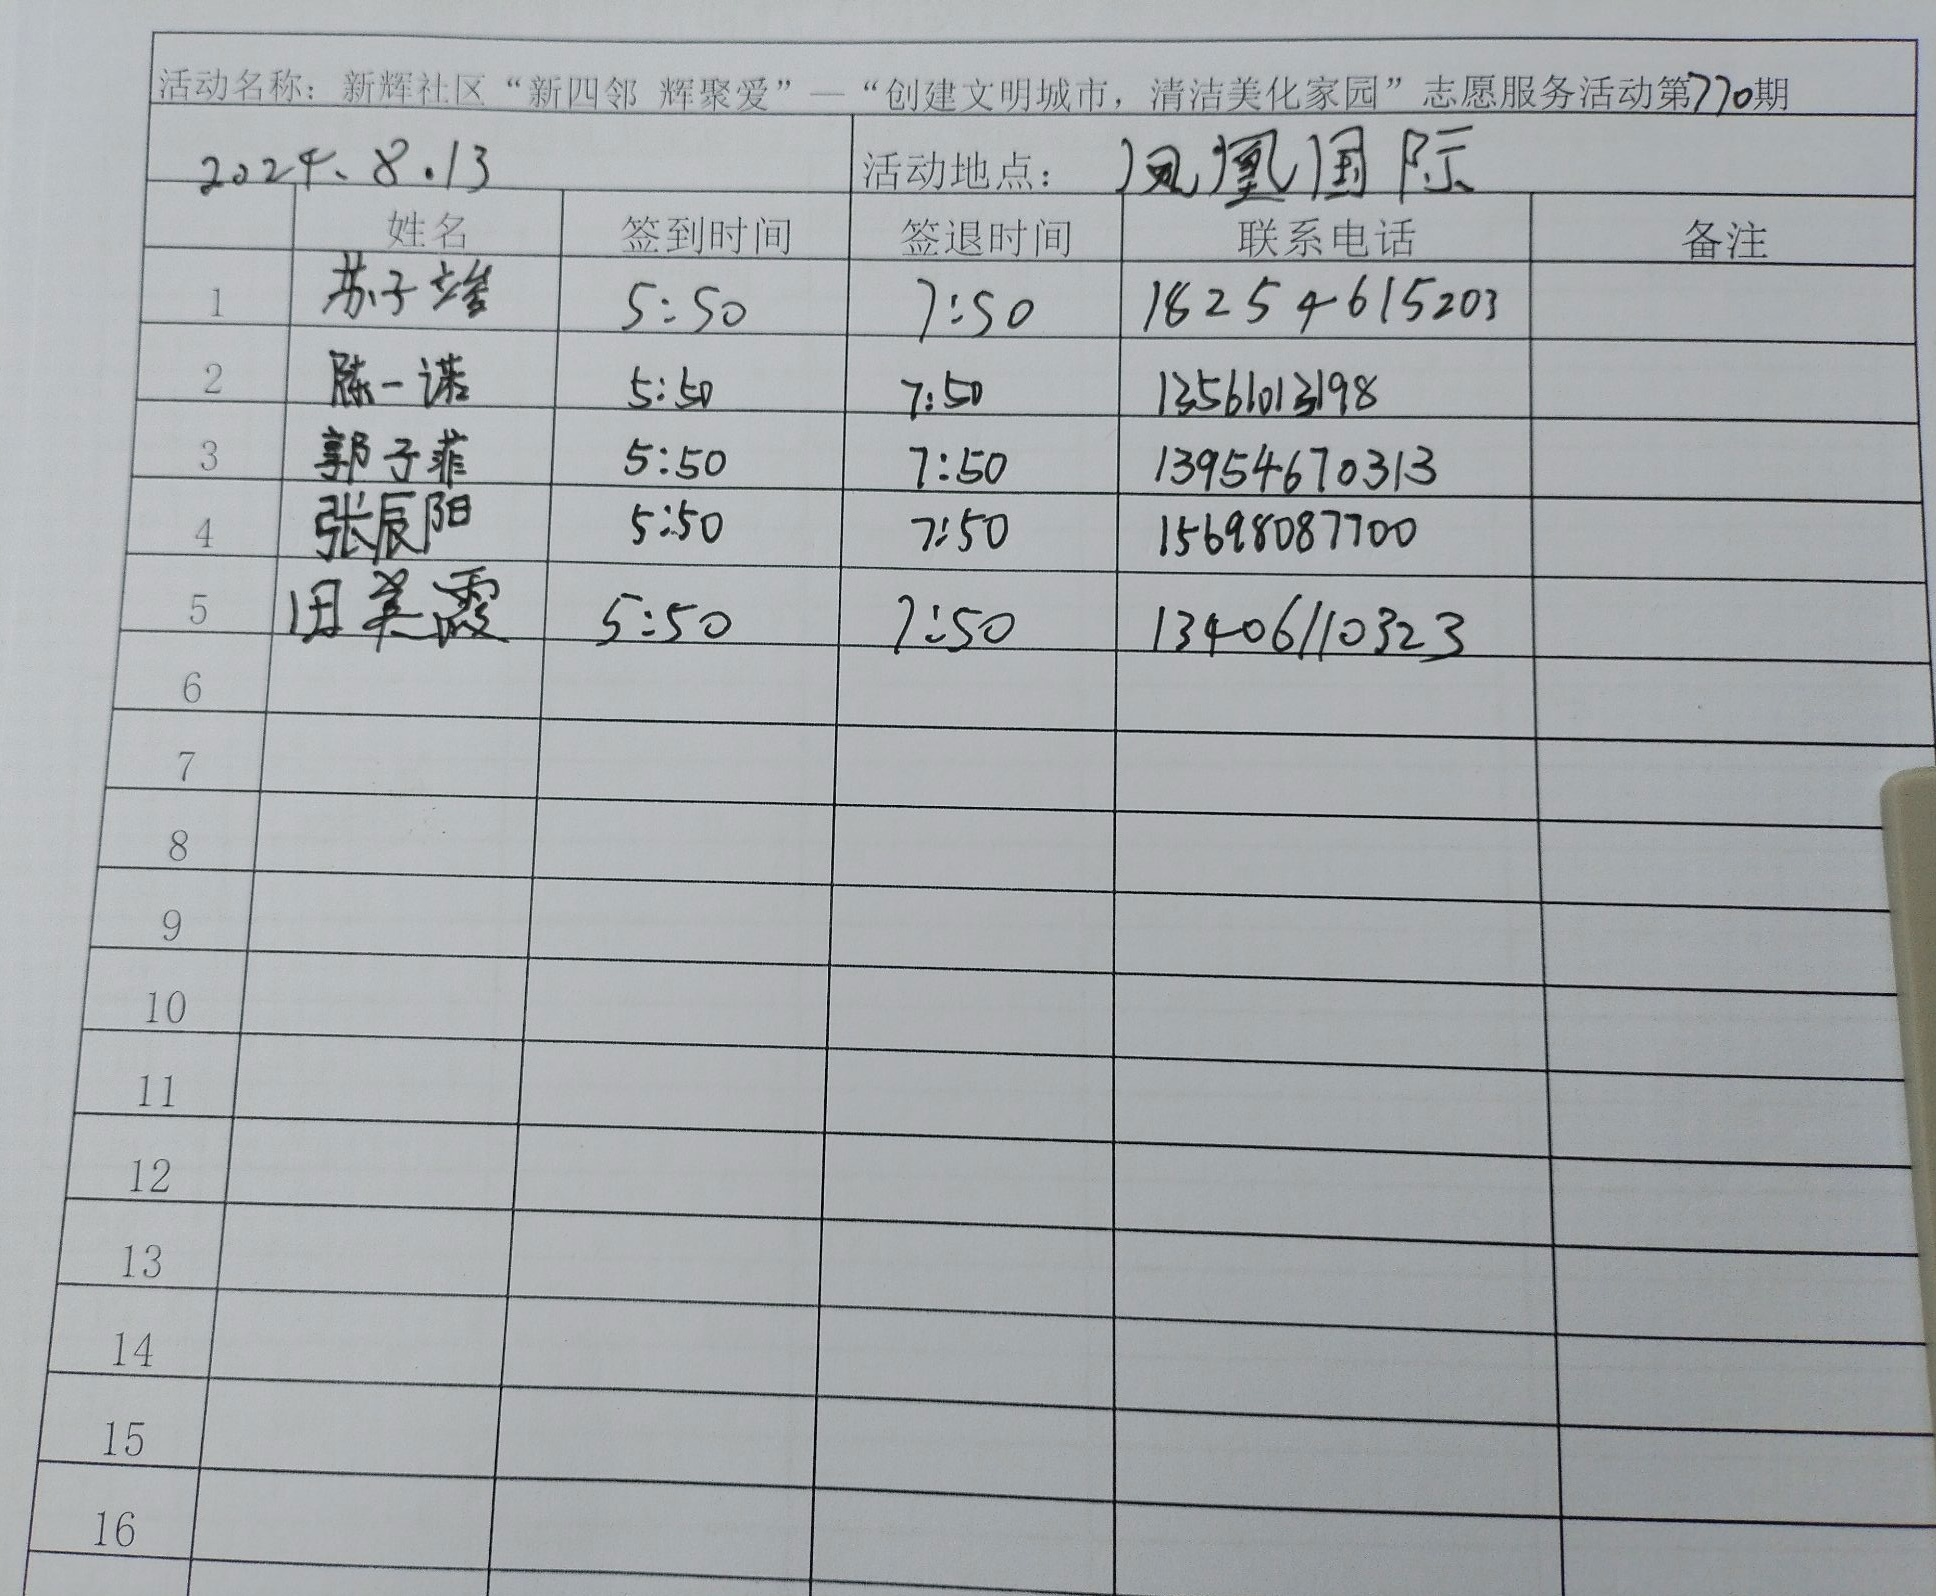 活动名称：新辉社区“新四邻 辉聚爱”—“创建文明城市，清洁美化家园”志愿服务活动第770期
2024.8.13 活动地点：凤凰国际
姓名 签到时间 签退时间 联系电话 备注
1 苏子 5:50 7:50 18254615203
2 陈一诺 5:50 7:50 13561013198
3 郭子菲 5:50 7:50 13954670313
4 张辰阳 5:50 7:50 15698087700
5 田美霞 5:50 7:50 13406110323
6
7
8
9
10
11
12
13
14
15
16